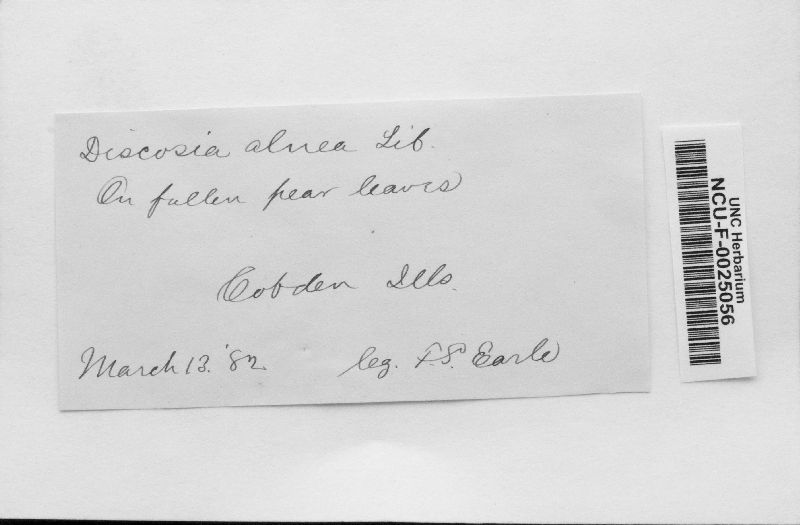 Discosia alnea Lib.
On fallen pear leaves
Cobden Ills.
March 13. '82 leg. F.S. Earle
UNC Herbarium
NCU-F-0025056